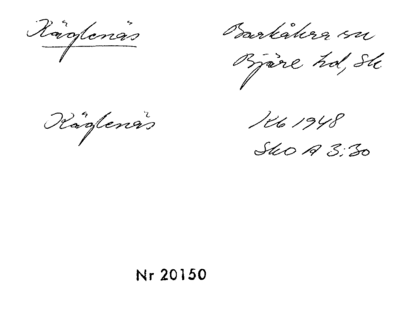 Käglenäs Barkåkra sn
Bjäre hd, Sk
Käglenäs Kb 1948
SkO A 3:30
Nr 20150